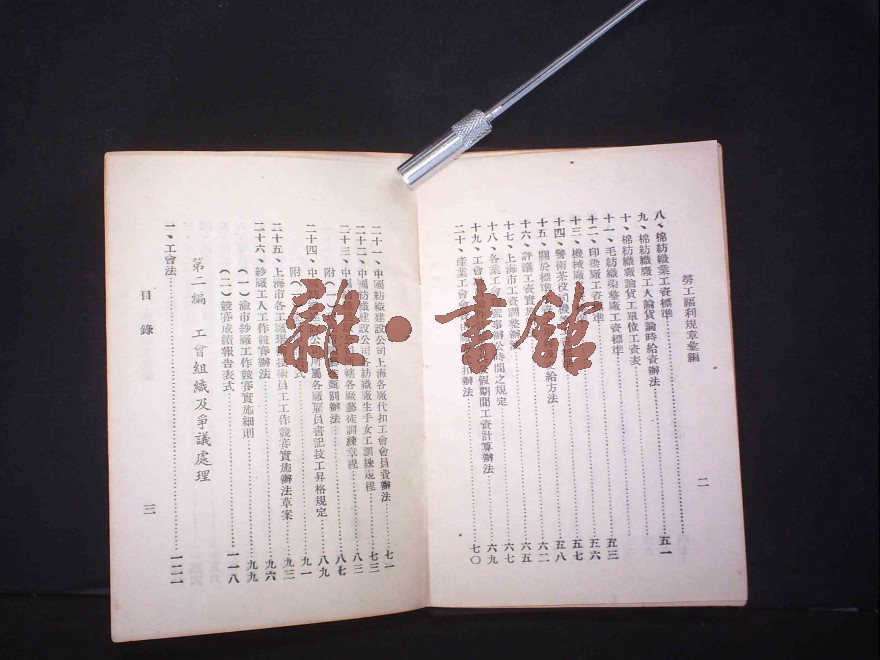 勞工福利規章彙編
二
八、棉紡織業工資標準 五一
九、棉紡織廠工人論貨論時給資辦法
十、棉紡織廠論貨工單位工資表
十一、毛紡織染整廠工資標準 五三
十二、印染廠工資標準 五六
十三、機械廠 五七
十四、警衛茶役司機等 五八
十五、關於標準 給方法 六二
十六、評議工資實施 六五
十七、上海市工資調整辦法 六七
十八、各業工會 辦公時間之規定 六九
十九、工會 假期間工資計算辦法
二十、產業工會會 扣辦法 七〇
二十一、中國紡織建設公司上海各廠代扣工會會員費辦法 七一
二十二、中國紡織建設公司各紡織廠生手女工訓練規程 七三
二十三、中 轄各廠藝徒訓練章程 八三
附(一) 甄別辦法 八七
二十四、中國紡 公司所屬各廠雇員書記技工昇格規定 八九
附( 式 九一
二十五、上海市各工廠 技術員工工作競賽實施辦法草案 九三
二十六、紗廠工人工作競賽辦法 九六
(一)渝市紗廠工作競賽實施細則 九九
(二)競賽成績報告表式 一一八
第二編 工會組織及爭議處理
一、工會法 一二一
目錄
三
雜·書館